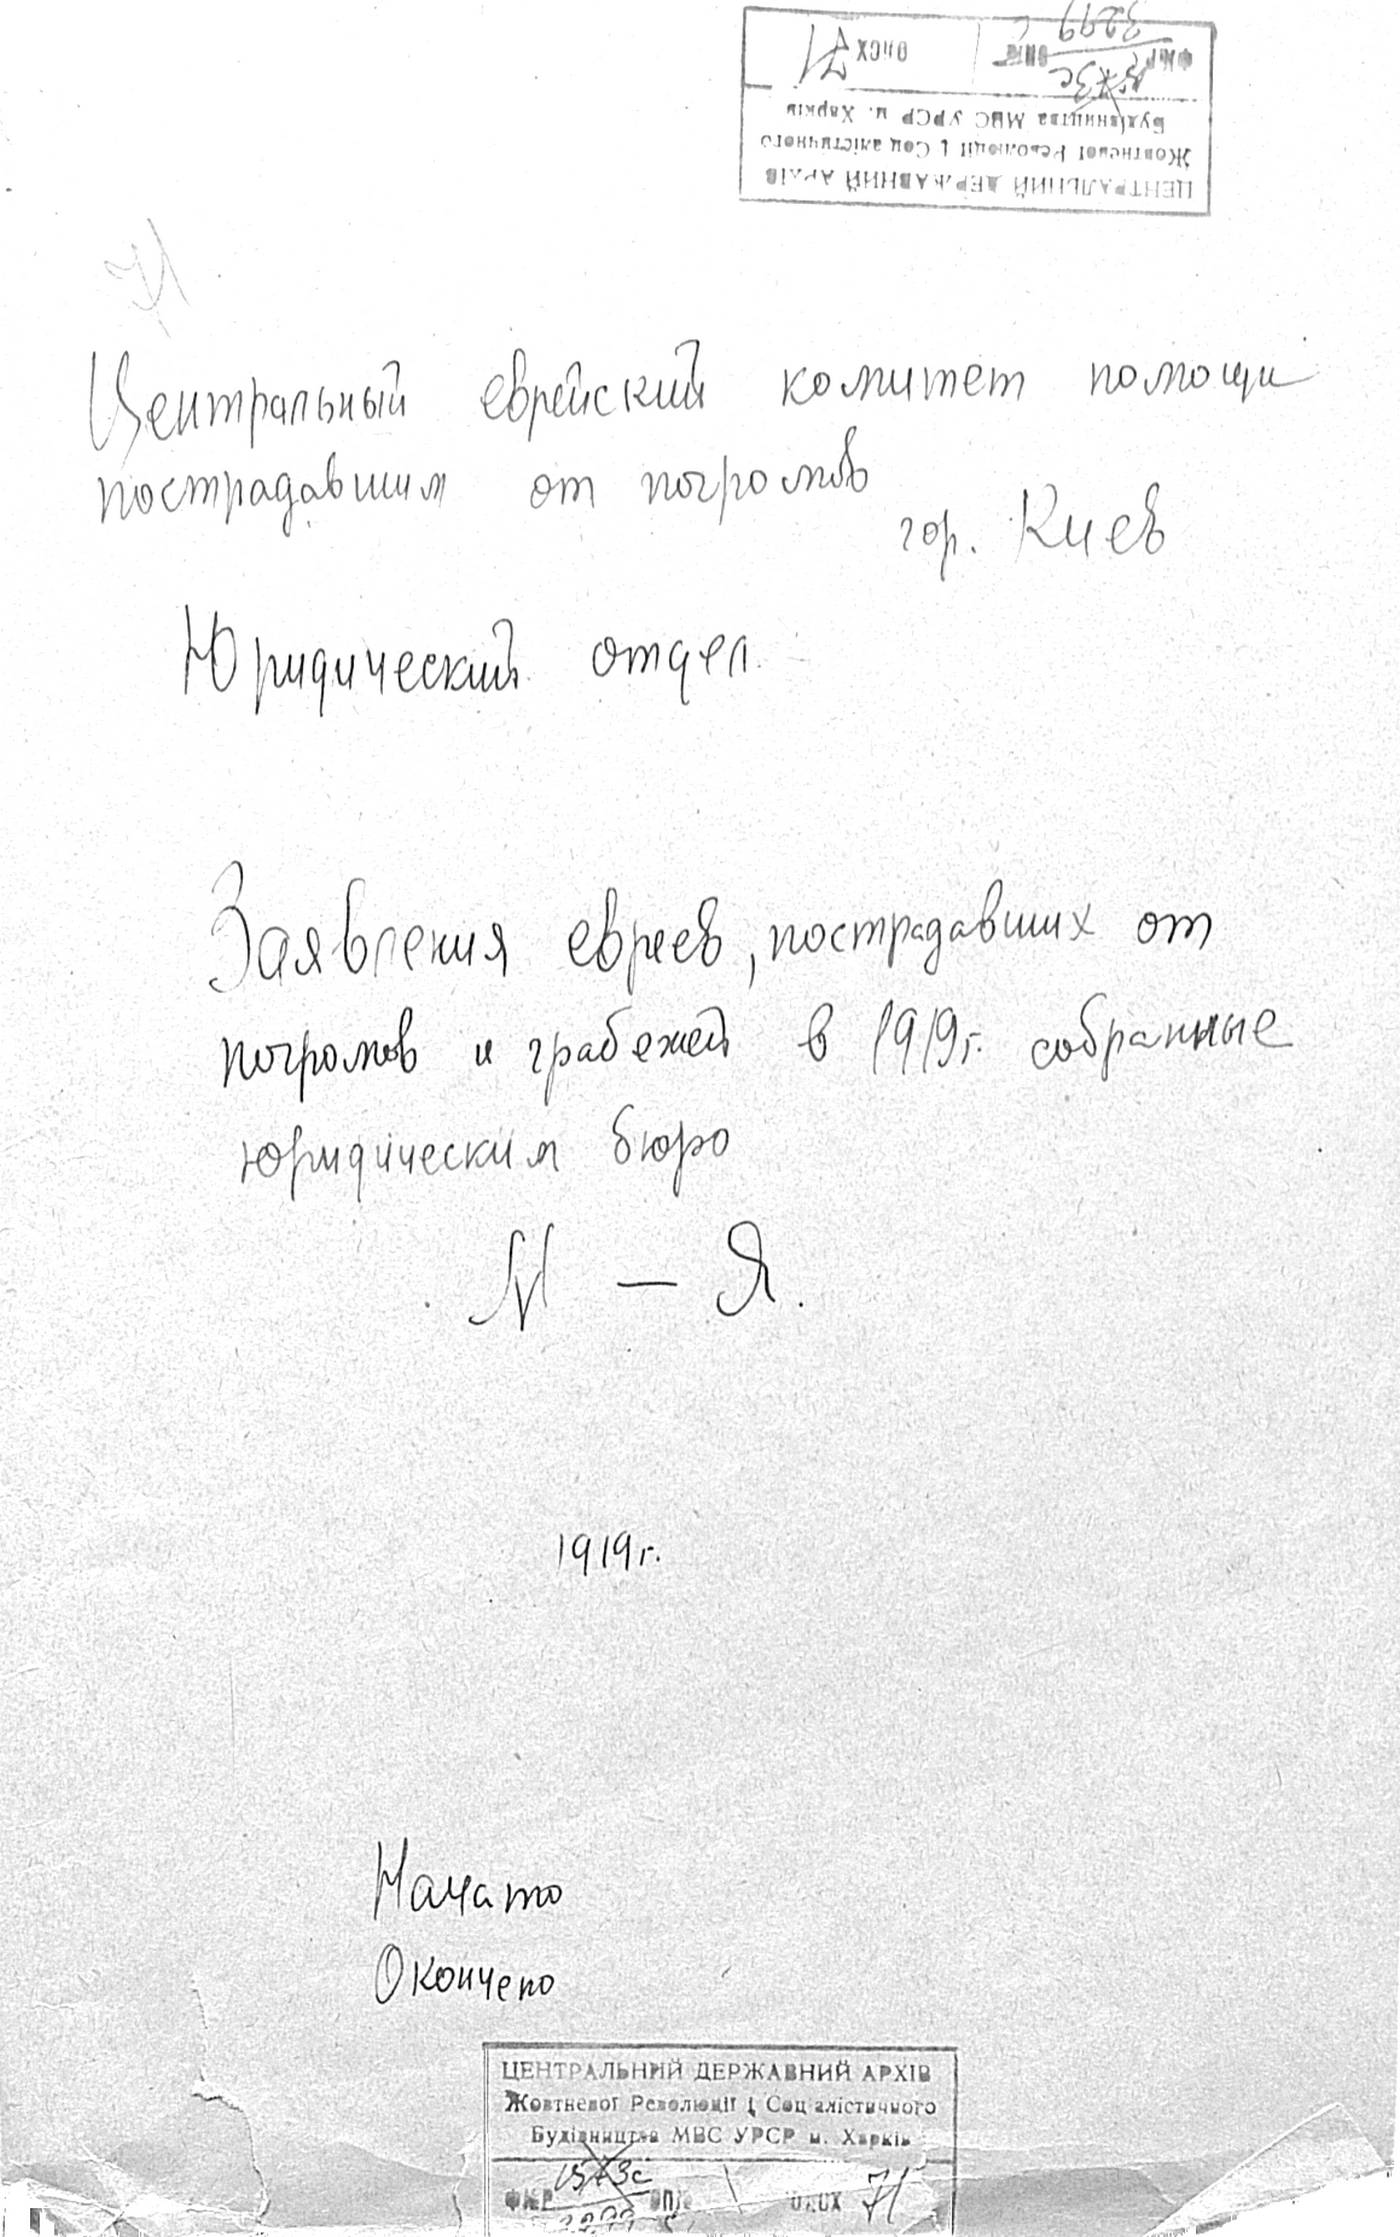 3299
ФР ОПИС ОДСХ 71
Будівництва МВС УРСР м. Харків
Жовтневої Революції і Соціалістичного
ЦЕНТРАЛЬНИЙ ДЕРЖАВНИЙ АРХІВ
Центральный еврейский комитет помощи
пострадавшим от погромов
гор. Киев
Юридический отдел
Заявления евреев, пострадавших от
погромов и грабежей в 1919г. собранные
юридическим бюро
М — Я.
1919г.
Начато
Окончено
ЦЕНТРАЛЬНИЙ ДЕРЖАВНИЙ АРХІВ
Жовтневої Революції і Соціалістичного
Будівництва МВС УРСР м. Харків
71